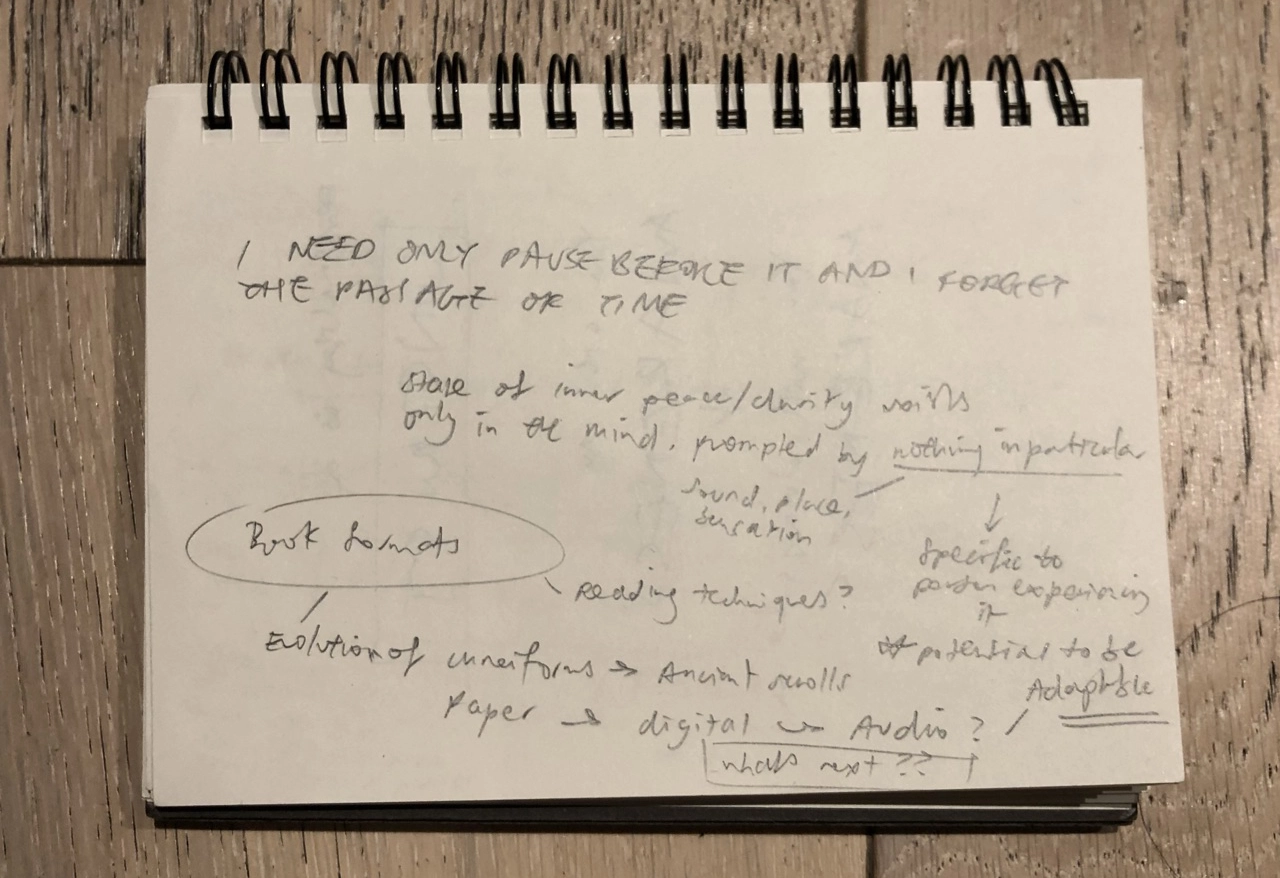 I NEED ONLY PAUSE BEFORE IT AND I FORGET
THE PASSAGE OF TIME
State of inner peace/clarity exists
only in the mind, prompted by nothing in particular
Sound, place,
sensation
Specific to
person experiencing
it
potential to be
Adaptable
Book formats
Reading techniques?
Evolution of cuneiforms → Ancient scrolls
Paper → digital → Audio? /
whats next ??